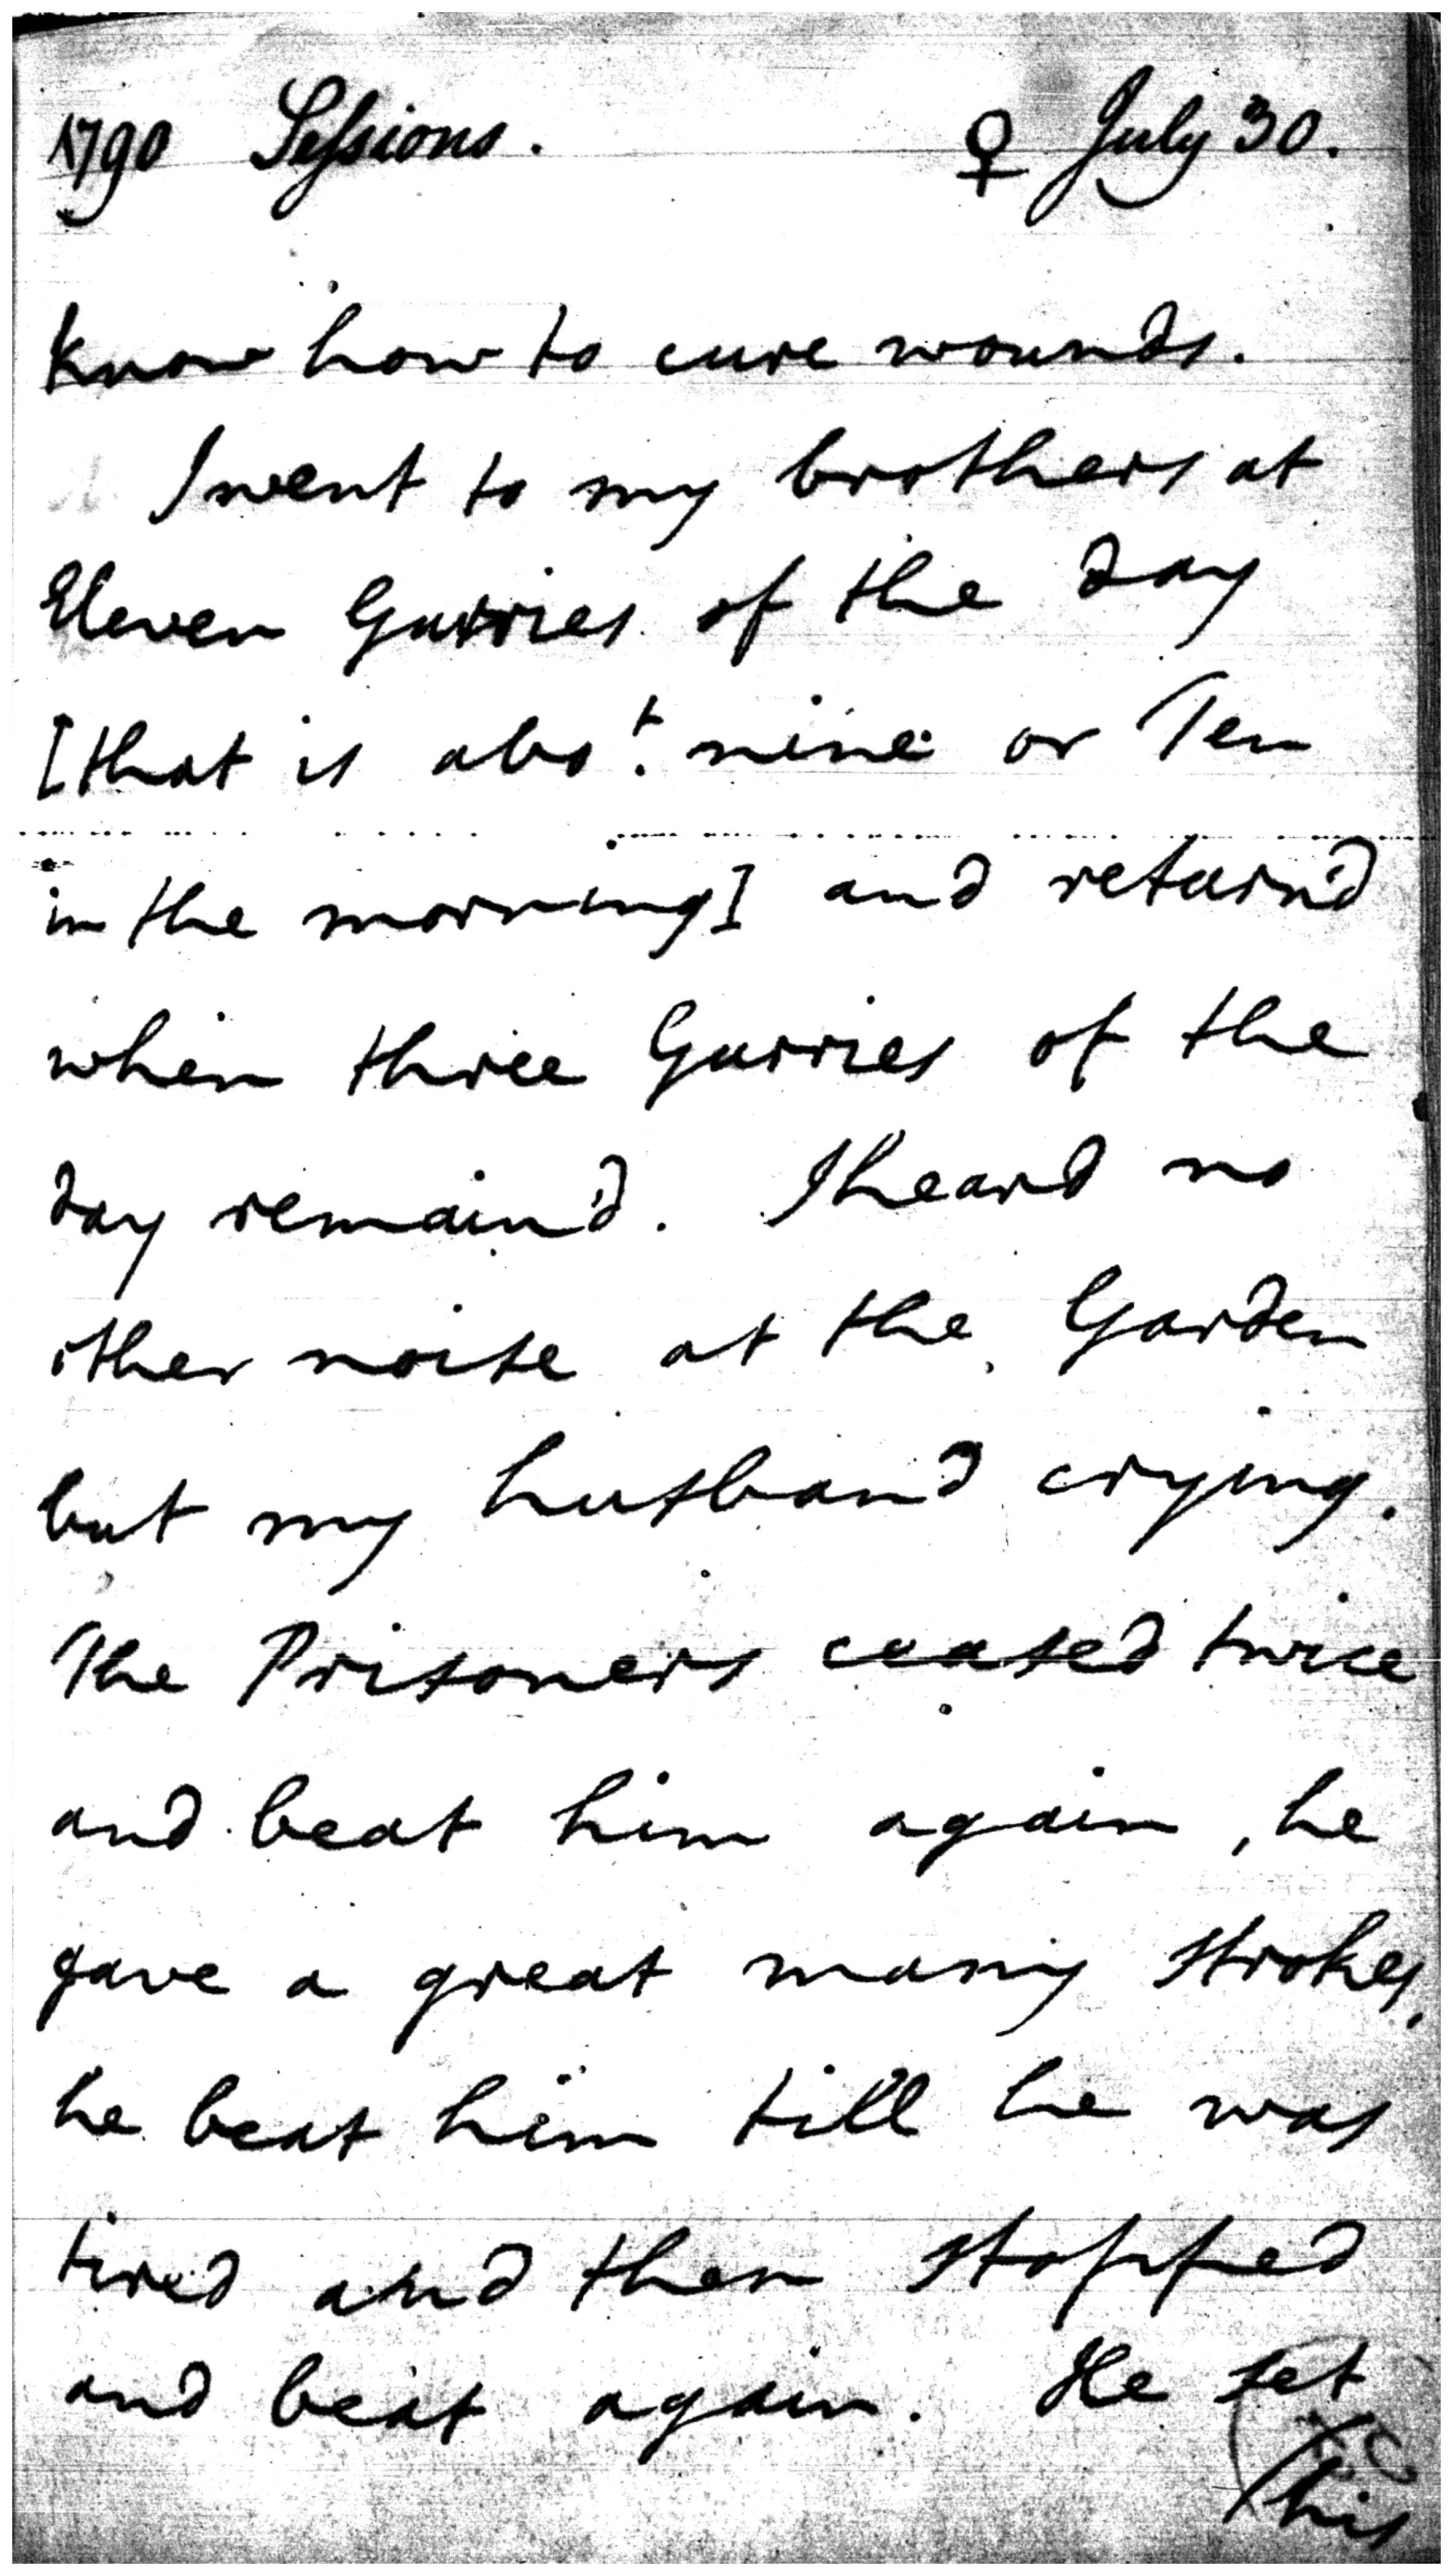 1790 Sessions. ♀ July 30.
know how to cure wounds.
I went to my brothers at
Eleven Gurries of the day
[that is abot. nine or Ten
in the morning] and return'd
when three Gurries of the
day remain'd. I heard no
other noise at the Garden
but my husband crying.
The Prisoners ceased twice
and beat him again, he
gave a great many strokes,
he beat him till he was
tired and then stopped
and beat again. He set
his